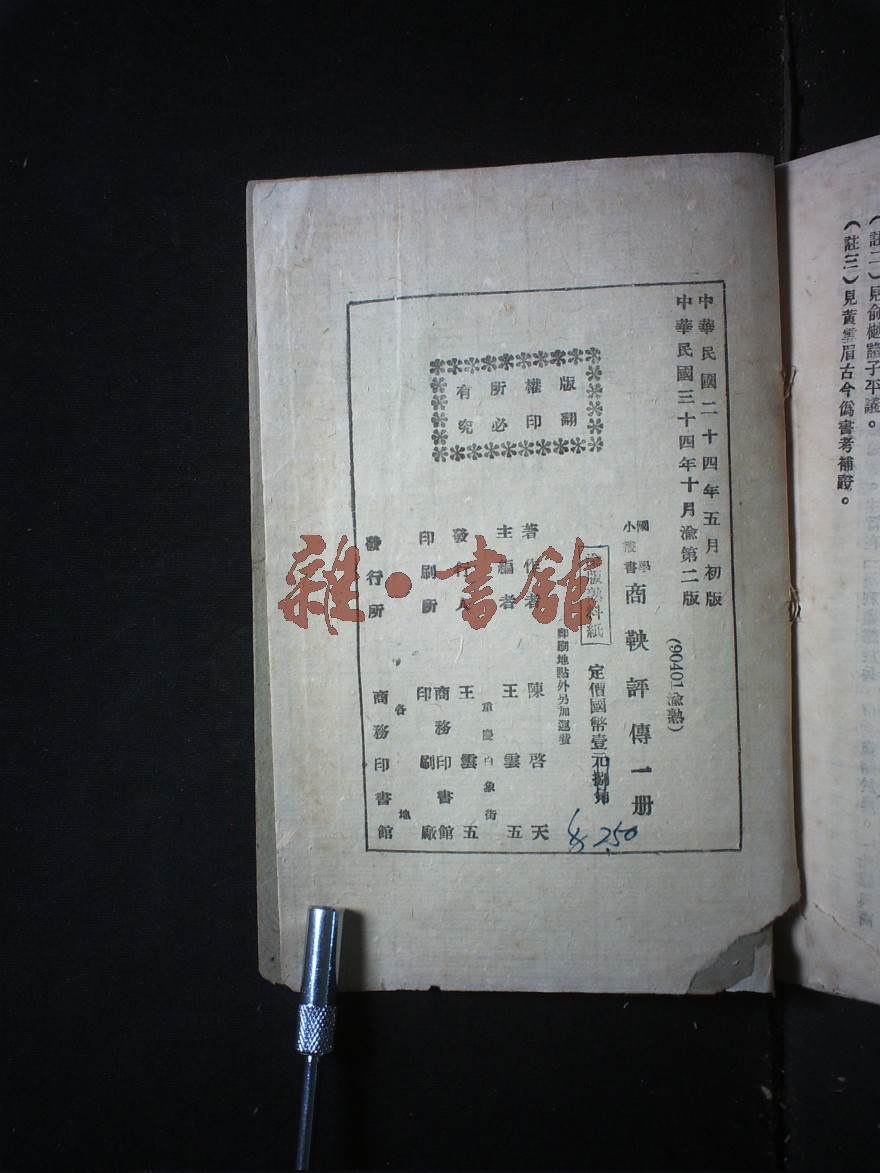 (註二)見俞樾諸子平議。
(註三)見黃雲眉古今偽書考補證。
中華民國二十四年五月初版
中華民國三十四年十月渝第二版
(90401渝熟)
國學
小叢書
商鞅評傳一册
渝版熟料紙
定價國幣壹元捌角
印刷地點外另加運費
版權所有
翻印必究
著作者 陳啓天
主編者 王雲五
重慶白象街
發行人 王雲五
印刷所 商務印書館
印刷廠
各地
發行所 商務印書館
250
雜·書館